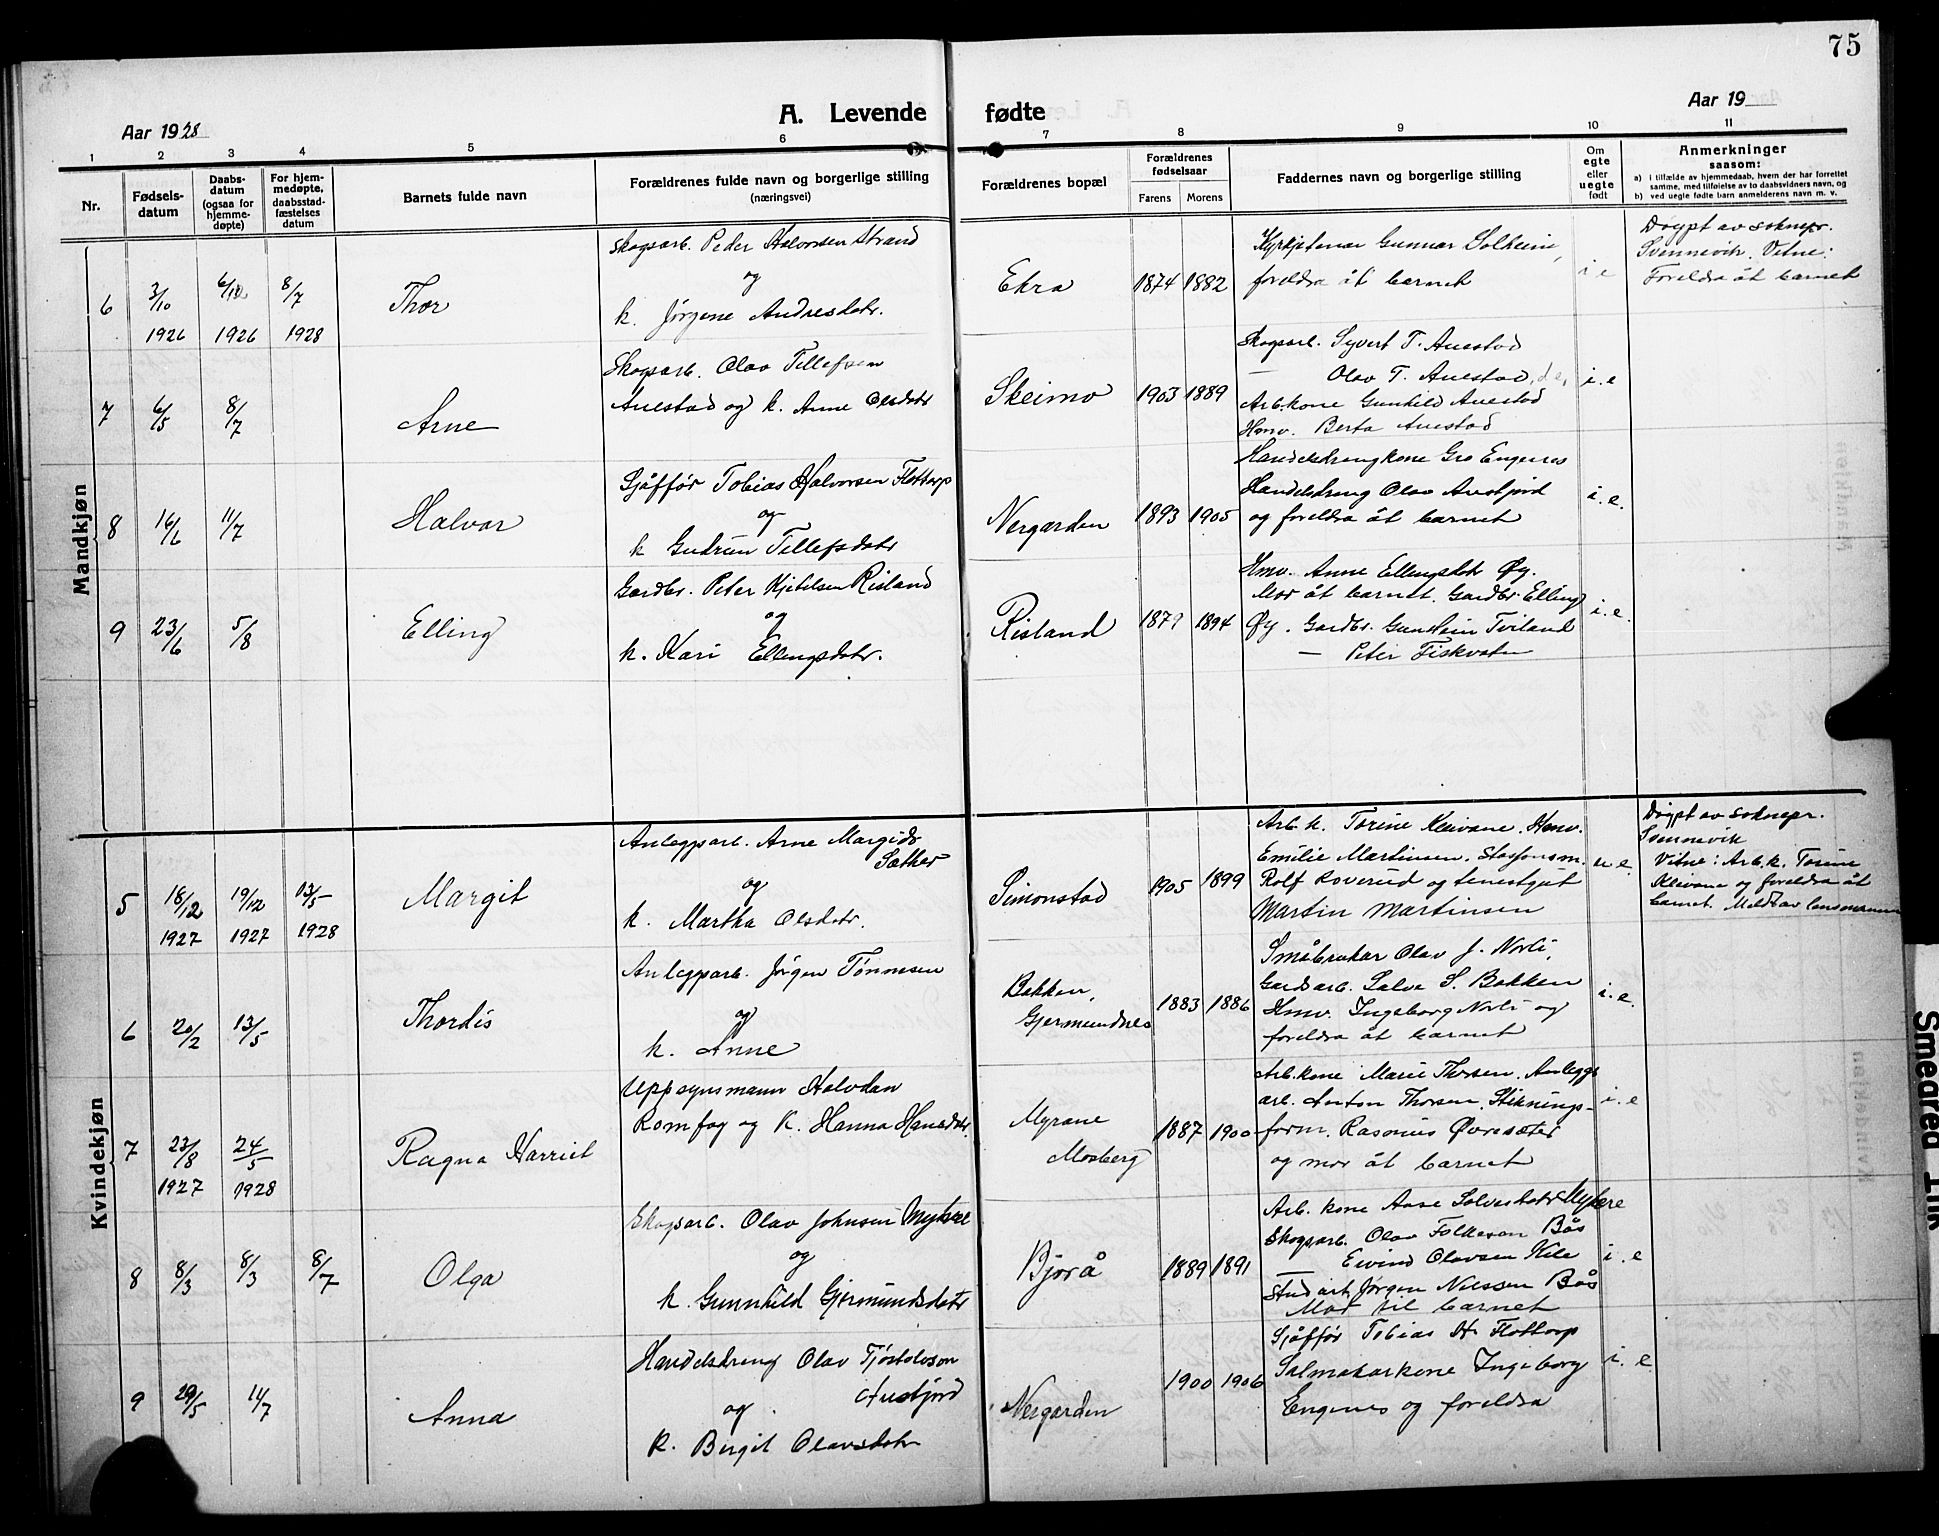 75
A. Levende fødte
Aar 1928
Aar 19
1 2 3 4 5 6 7 8 9 10 11
Nr.
Fødsels-
datum
Daabs-
datum
(ogsaa for
hjemme-
døpte)
For hjem-
medøpte,
daabsstad-
fæstelses
datum
Barnets fulde navn
Forældrenes fulde navn og borgerlige stilling
(næringsvei)
Forældrenes bopæl
Forældrenes
fødselsaar
Farens Morens
Faddernes navn og borgerlige stilling
Om
egte
eller
uegte
født
Anmerkninger
saasom:
a) i tilfælde av hjemmedaab, hvem der har forrettet
samme, med tilføielse av to daabsvidners navn, og
b) ved uegte fødte barn anmelderens navn m. v.
Mandkjøn
6
3/10
1926
6/10
1926
8/7
1928
Thor
Skogsarb. Peder Halvorsen Strand
og
k. Jørgine Andresdatr.
Ekra
1874 1882
Kyrkjetenar Gunnar Solheim,
foreldra åt barnet
i e
Døypt av soknepr.
Svennevik. Vitne:
Foreldra åt barnet
7
6/5
8/7
Arne
Skogsarb. Olav Tellefsen
Auestad og k. Anne Olsdatr
Skeimo
1903 1889
Skogsarb. Syvert T. Auestad
— Olav T. Auestad
Arb.kone Gunhild Auestad
Hmv. Berta Auestad
i. e
8
16/6
11/7
Halvar
Sjåffør Tobias Halvorsen Flottorp
og
k Gudrun Tellefsdatr
Nergarden
1893 1905
Handelsdrengkone Gro Engenes
Handelsdreng Olav Austjord
og foreldra åt barnet
i. e.
9
23/6
5/8
Elling
Gardbr. Peter Kjetilsen Risland
og
k. Kari Ellingsdatr.
Risland
1879 1894
Hmv. Anne Ellingsdotr Øy.
Mor åt barnet. Gardbr Elling
Øy. Gardbr. Gunstein Tviland
— Peter Fiskvatn
i. e.
Kvindekjøn
5
18/12
1927
19/12
1927
13/5
1928
Margit
Anleggsarb. Arne Margido
Sæther
og
k. Martha Olsdatr.
Simonstad
1905 1899
Arb. k. Torine Kleivane. Hmv.
Emilie Martinsen. Stasjonsm.
Rolf Roverud og tenestgut
Martin Martinsen
u e.
Døypt av soknepr.
Svennevik
Vitne: Arb. k. Torine
Kleivane og foreldra åt
barnet. Meldt av lensmannen
6
20/2
13/5
Thordis
Anleggsarb. Jørgen Tønnesen
og
k. Anne
Bakken,
Gjermundnes
1883 1886
Småbrukar Olav J. Norli,
Gardsarb. Salve S. Bakken
Hmv. Ingeborg Norli og
foreldra åt barnet
i. e.
7
23/8
1927
24/5
1928
Ragna Harriet
Uppsynsmann Halvdan
Romfog og k. Hanna Hansdatr.
Myrane
Mosberg
1887 1900
Arb.kone Marie Thorsen. Anleggs
arb. Anton Thorsen. Stiknings-
form. Rasmus Øvresæter
og mor åt barnet
i. e
8
8/3
8/3
8/7
Olga
Skogsarb. Olav Johnsen Mykset
og
k. Gunnhild Gjermundsdatr
Bjorå
1889 1891
Arb. kone Aase Salvesdatr
Skogsarb. Olav Folkeson Bås
— Eivind Olavsen Kile
Stud art. Jørgen Nilssen Bås
Mor til barnet
i. e
9
29/5
11/7
Anna
Handelsdreng Olav Tjøstolvson
Austjord
og
k. Birgit Olavsdatr
Nergarden
1900 1906
Sjåffør Tobias H. Flottorp
Salmakarkone Ingeborg
Engenes og foreldra
i. e
Smedred Trik